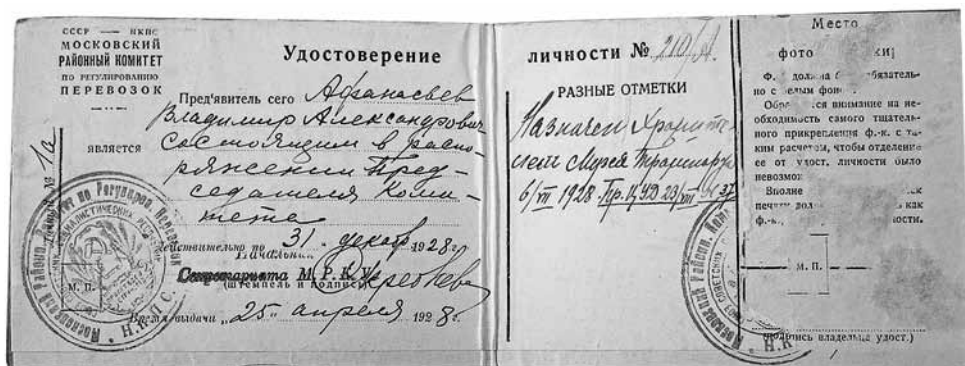 СССР — НКПС
МОСКОВСКИЙ
РАЙОННЫЙ КОМИТЕТ
ПО РЕГУЛИРОВАНИЮ
ПЕРЕВОЗОК
№ 1а
Удостоверение
Пред'явитель сего Афанасьев
Владимир Александрович
является Состоящим в распо-
ряжении Пред-
седателя Коми-
тета
Действительно по 31 декабр 1928 г.
Начальник
Секретариата М. Р. К.
(штемпель и подпись)
М. П.
Время выдачи „25" апреля 1928 г.
Московский Район. Комитет по Регулиров. Перевозок
Н.К.П.С.
личности № 210/А.
РАЗНЫЕ ОТМЕТКИ
Назначен Храните-
лем Музея
6/VII 1928 Пр. ЦУД 23/VII № 37
Московский Район. Ком
Н.К
Место
фото ки
Ф. должна б бязатель-
но с белым фоном
Обра ся внимание на не-
обходимость самого тщатель-
ного прикрепления ф.-к. с та-
ким расчетом, чтобы отделение
ее от удост. личности было
невозмож
Вполне
печати дол как
ф.-к. ности.
М. П.
(подпись владельца удост.)